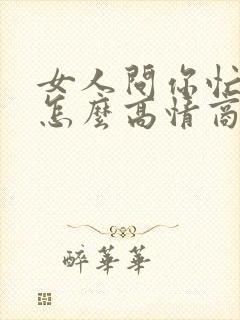 女人問你忙
怎麼高情商
醉華華